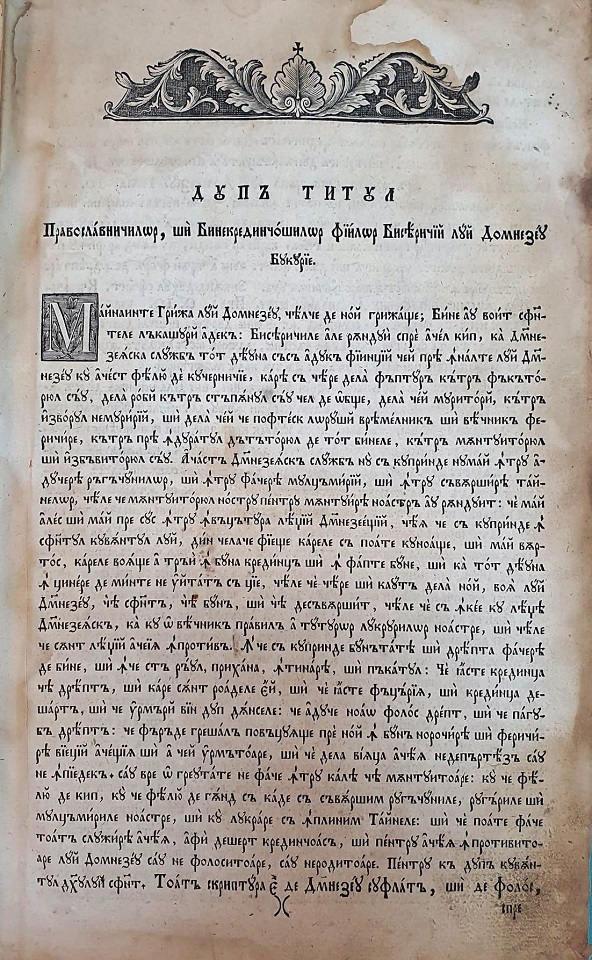 ДꙊПЪ ТИТꙊЛ
Православничилѡр, шѝ Бинекрединчо́шилѡр Фїи́лѡр Бисѣричїй лꙋй Домнезеꙋ
Бꙋкꙋрїе.
Май́наинте Гри́жа лꙋй Домнезеꙋ, чѣлче де но́й грижа́ще; Бине аꙋ̀ вои́т сфи҃-
теле лъкашꙋрй а҆дека: Бисѣричиле а҆ле рѫндꙋи̂ спрѐ а҆че́л кип, ка̀ Дм҃не-
зеѧ́ска слꙋжбъ то́т дѣꙋна съсъ а҆дꙋкъ фїинцїй чей прѣ ꙟналте лꙋй Дм҃-
незе́ꙋ кꙋ а҆че́ст фѣ́лю дѐ кꙋчерничїе, ка́ре съ че́ре дела̀ фъптꙋръ кътръ фъкъто́-
рюл съ́ꙋ, дела̀ ро́бй кътръ стъпѫ́нꙋл съ́ꙋ чел де ѡ҆бще, дела̀ че́й мꙋрито́рй, кътръ
и҆зво́рꙋл немꙋри́рїй, шѝ дела̀ че́й че пофте́ск лорꙋшй врѣме́лник шѝ вѣ́чник фе-
ричи́ре, кътръ прѣ ꙟ҆дꙋра́тꙋл дътъто́рюл де то́т бинеле, кътръ мѫнтꙋито́рюл
шѝ и҆збъви́торюл съ́ꙋ. А҆ча́стъ Дм҃незеѧ́скъ слꙋжбъ нꙋ съ кꙋпри́нде нꙋма́й ꙟ҆тр а҆-
дꙋчерѣ рꙋгъчꙋнилѡр, шѝ ꙟ҆тр фа́черѣ мꙋлцꙋми́рїй, шѝ ꙟ҆тр съвѫрши́рѣ та́й-
нелѡр, чѣле че мѫнтꙋито́рюл но́стрꙋ пе́нтрꙋ мѫнтꙋи́рѣ ноа́стръ аꙋ̀ рѫндꙋи́т: чѐ ма́й
а҆ле́с шѝ ма́й пре сꙋс ꙟ҆тр ꙟ҆въцътꙋра ле́ӱїй Дм҃незее́щїй, чѣѧ че съ кꙋпри́нде ꙟ҆
сфи҃тꙋл кꙋвѫ́нтꙋл лꙋй, ди́н челаче фїеще ка́реле съ поа́те кꙋноа́ще, шѝ ма́й вѫр-
то́с, ка́реле воѧ́ще а҆ тръи́ ꙟ҆ бꙋна креди́нцъ шѝ ꙟ҆ фа́пте бꙋне, шѝ ка̀ то́т дѣꙋна
ꙟ҆ ци́нере де ми́нте не ӱи́татъ съ ці́е, чѣле чѐ че́ре шѝ ка́ꙋтъ дела̀ но́й, во́ѧ лꙋй
Дм҃незе́ꙋ, чѣ сфи҃тъ, чѣ бꙋнъ, шѝ чѣ десъвѫрши́тъ, чѣле чѐ съ ꙟ҆ке́е кꙋ ле́ӱѣ
Дм҃незеѧ́скъ, ка̀ кꙋ ѡ҆ вѣ́чникъ пра́вилъ а҆ тꙋтꙋрѡр лꙋкрꙋрилѡр ноа́стре, шѝ чѣле
че сѫнт ле́ӱїй а҆че́їѧ ꙟ҆проти́въ. Ꙟ҆ че съ кꙋпри́нде бꙋнъта́тѣ шѝ дрѣ́пта фа́черѣ
де би́не, шѝ ꙟ҆ че стъ̀ ръ́ꙋл, приха́на, ꙟ҆тина́рѣ, шѝ пъка́тꙋл: Чѐ ꙗ҆сте креди́нца
чѣ дрѣ́птъ, шѝ ка́ре сѫнт роа́деле є҆й, шѝ чѐ ꙗ҆сте фъцъри́ѧ, шѝ креди́нца де-
ша́ртъ, шѝ че ӱрмъ́рй ви́н дꙋпъ дѫ́нселе: че а҆дꙋче ноа́ѡ фоло́с дре́пт, шѝ че па́гꙋ-
бъ дрѣ́птъ: че фъ́ръде греша́лъ повъцꙋѧще пре но́й ꙟ҆ бꙋнъ норочи́рѣ шѝ феричи́-
рѣ вїе́цїй а҆че́щїѧ шѝ а҆ че́й ӱрмътоа́ре, шѝ чѐ дела̀ вїѧ́ца а҆чѣ́ѧ недепъртѣ́зъ са́ꙋ
не ꙟ҆пїе́декъ, са́ꙋ вре ѡ҆ греꙋта́те не фа́че ꙟ҆тр ка́лѣ чѣ мѫнтꙋитоа́ре: кꙋ че фѣ́-
лю де кип, кꙋ че фѣ́лю де гѫ́нд съ ка́де съ съвѫрши́м рꙋгъчꙋниле, рꙋгъриле шѝ
мꙋлцъми́риле ноа́стре, шѝ кꙋ лꙋкра́ре съ ꙟ҆плини́м Та́йнеле: шѝ че поа́те фа́че
тоа́тъ слꙋжи́рѣ а҆чѣ́ѧ, а҆фи̂ деше́ртъ крединчоа́съ, шѝ пе́нтрꙋ а҆чѣ́ѧ ꙟ҆противито-
а́ре лꙋй Домнезе́ꙋ са́ꙋ не фолоситоа́ре, са́ꙋ неродитоа́ре. Пе́нтрꙋ къ дꙋпъ кꙋвѫ́н-
тꙋл дх҃ꙋлꙋй сфи҃т, Тоа́тъ скриптꙋра є҆́ де Дм҃незе́ꙋ сꙋфла́тъ, шѝ де фоло́с,
спре